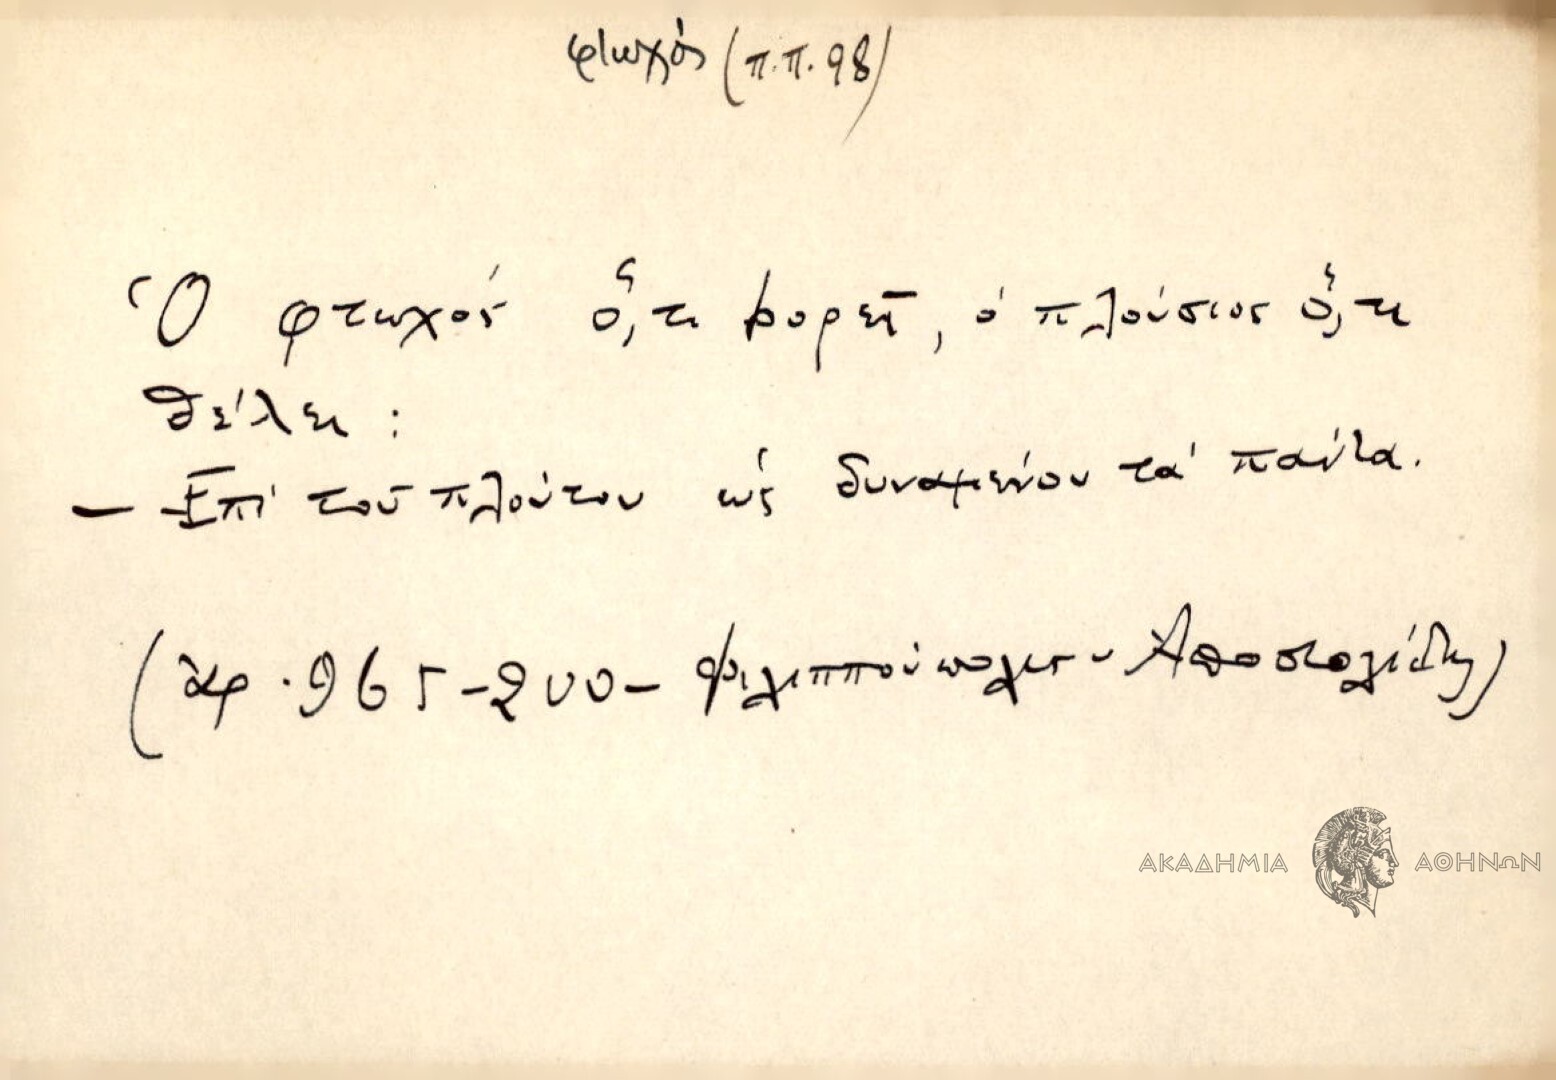 φτωχός (π.π. 98)
Ὁ φτωχός ὅ,τι φορεῖ, ὁ πλούσιος ὅ,τι
θέλει:
— Ἐπί τοῦ πλούτου ὡς δυναμένου τά πάντα.
(ἀρ. 965-200- Φιλιππούπολις - Ἀποστολίδη)
ΑΚΑΔΗΜΙΑ ΑΘΗΝΩΝ